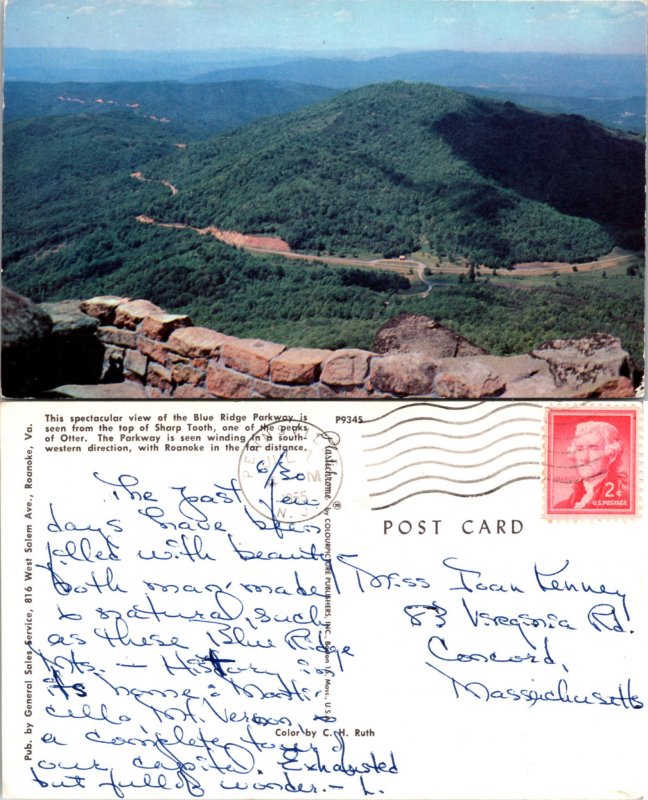 This spectacular view of the Blue Ridge Parkway is
seen from the top of Sharp Tooth, one of the peaks
of Otter. The Parkway is seen winding in a south-
western direction, with Roanoke in the far distance.
P9345
Pub. by General Sales Service, 816 West Salem Ave., Roanoke, Va.
Plastichrome ® by COLOURPICTURE PUBLISHERS, INC., Boston 15, Mass., U.S.A.
JUL 7
PM
1955
N. J.
2¢
U.S. POSTAGE
POST CARD
6/30
The past few
days have been
filled with beauty
both man-made
& natural, such
as these Blue Ridge
Mts. — History in
its home; Monti-
cello Mt. Vernon, &
a complete tour of
our capital. Exhausted
but full of wonder. – L.
Color by C. H. Ruth
Miss Joan Kenney
83 Virginia Rd.
Concord,
Massachusetts